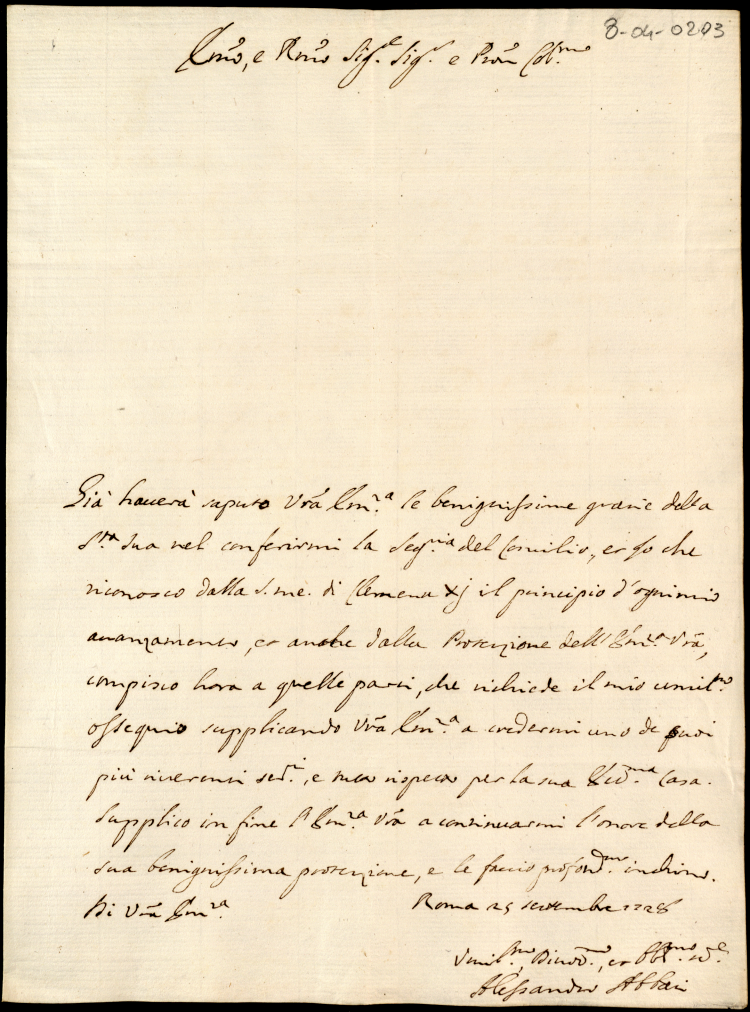 8-04-0203
Emo, e Rmo Sig.e Sig.r e Pron Col.mo
Già hauerà saputo Vrã Em.za le benignissime grazie della
S.tà Sua nel conferirmi la Seg.ria del Concilio, et Io che
riconosco dalla S. me. di Clemente XI il principio d'ogni mio
auanzamento, et anche dalla Protezione dell'Em.za Vrã,
compisco hora a quelle parti, che richiede il mio umil.mo
ossequio supplicando Vrã Em.za a credermi uno de suoi
più riuerenti ser.ri, e
per la sua Ecc.ma Casa.
Supplico in fine l'Em.za Vrã a continuarmi l'onore della
sua benignissima protezione, e le faccio profond.mo inchino.
Di Vrã Em.za
Roma 25 settembre 1728
Vmil.mo, Diuot.mo, et Obl.mo ser.e
Alessandro